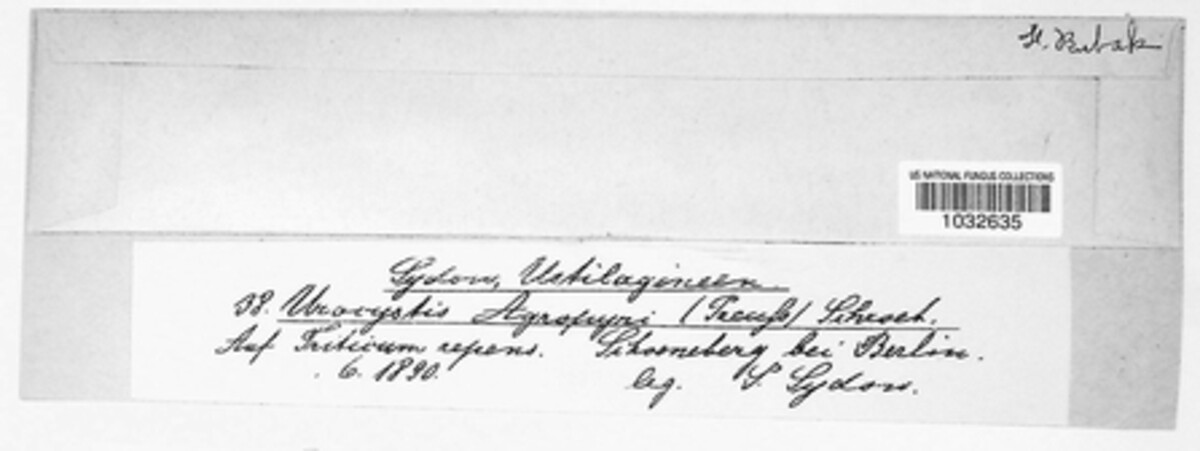 H. Bubak
US NATIONAL FUNGUS COLLECTIONS
1032635
Sydow, Ustilagineen.
38. Urocystis Agropyri (Preuß) Schroet.
Auf Triticum repens. Schoeneberg bei Berlin.
6. 1890. leg. P. Sydow.